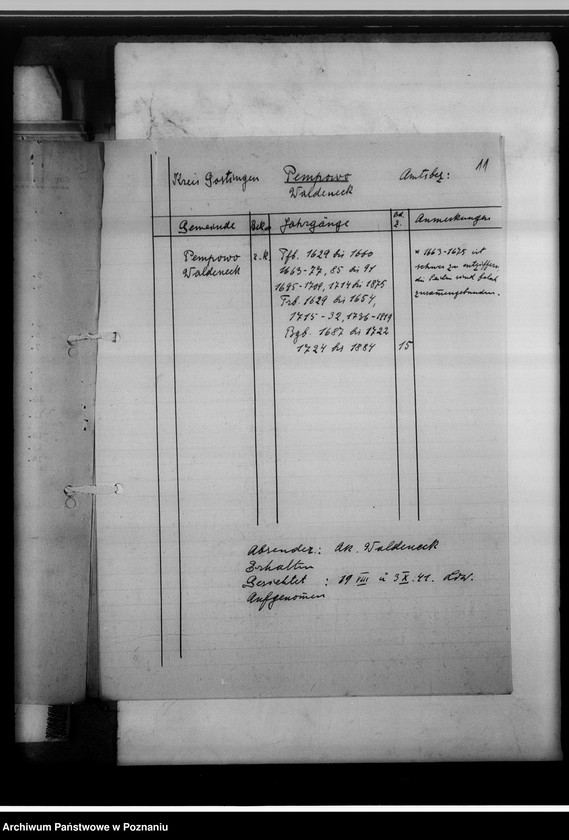 11
Kreis Gostingen Pempowo Amtsbez:
Waldeneck
Gemeinde Bek. Jahrgänge Bd. Z. Anmerkungen
Pempowo r. k. Tfb. 1629 bis 1660 * 1663-1675 ist
Waldeneck 1663-77, 85 bis 91 schwer zu entziffern,
1695-1709, 1714 bis 1875 die Seiten sind falsch
Trb. 1629 bis 1654, zusammengebunden.
1715-32, 1736-1819
Bgb. 1687 bis 1722
1724 bis 1884 15
Absender: AK. Waldeneck
Erhalten
Gesichtet : 19 VIII u 3 X. 41.
Aufgenomen
Archiwum Państwowe w Poznaniu